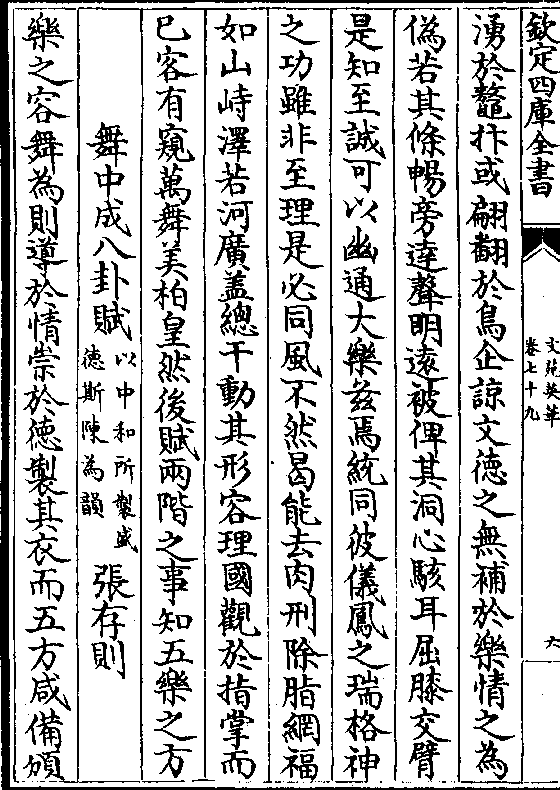 欽定四庫全書
文苑英華
卷七十九
六
湧於鼇抃或翩翻於鳥企諒文德之無補於樂情之為
偽若其條暢旁達聲明遠被俾其洞心駭耳屈膝交臂
是知至誠可以幽通大樂茲焉統同彼儀鳳之瑞格神
之功雖非至理是必同風不然曷能去肉刑除脂網福
如山峙澤若河廣蓋總干動其形容理國觀於指掌而
已客有窺萬舞美柏皇然後賦兩階之事知五樂之方
舞中成八卦賦 以中和所製盛德斯陳為韻 張存則
樂之容舞為則導於情崇於德製其衣而五方咸備頒